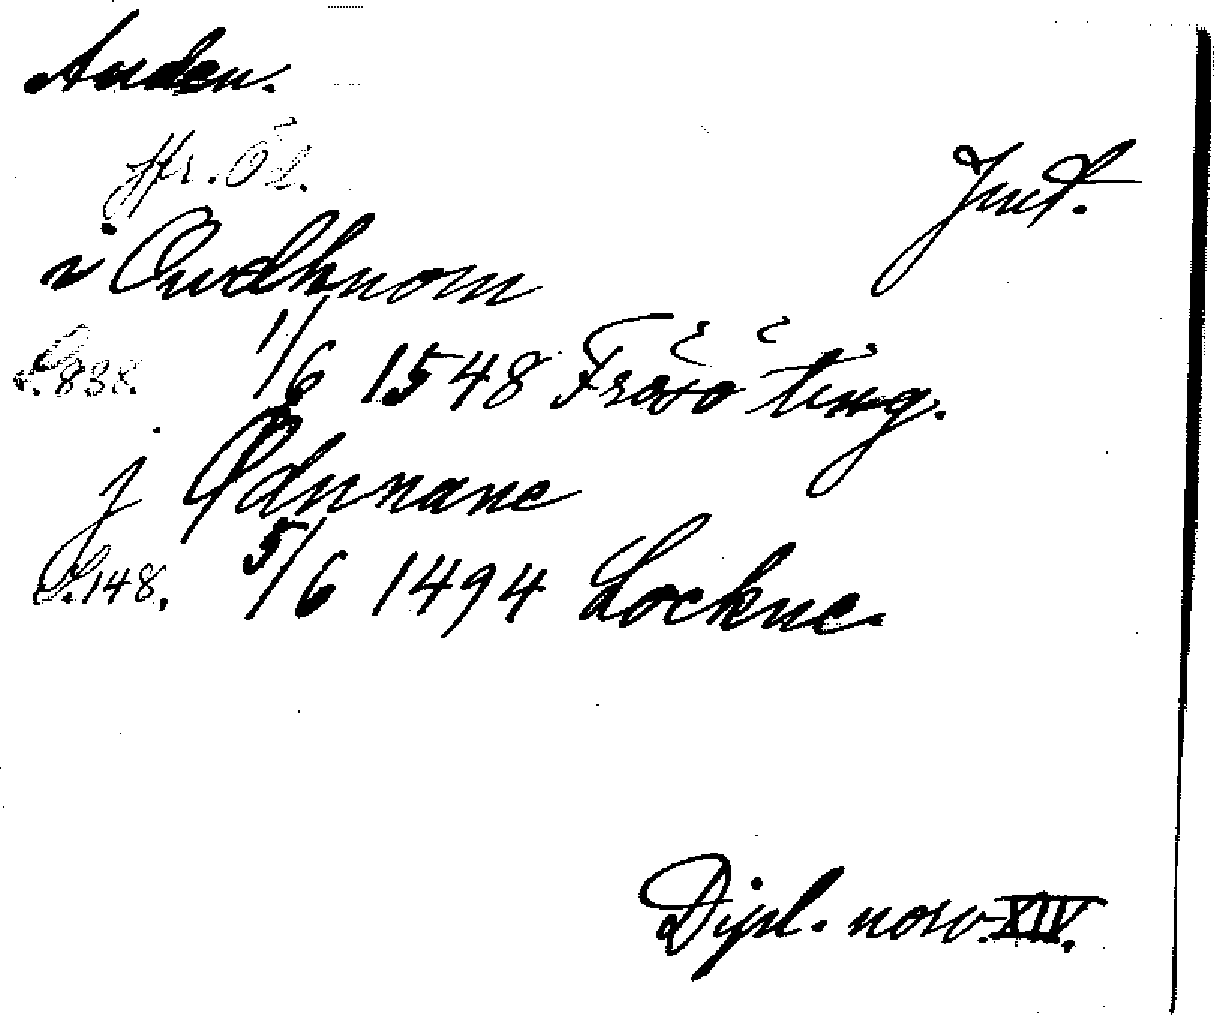 Anden.
Jfr. Ö.L.
Jmt.
i Owdhnom
S.838. 1/6 1548 Frösö ting.
j Ødnnane
S.148. 5/6 1494 Lockne.
Dipl. norv. XIV.